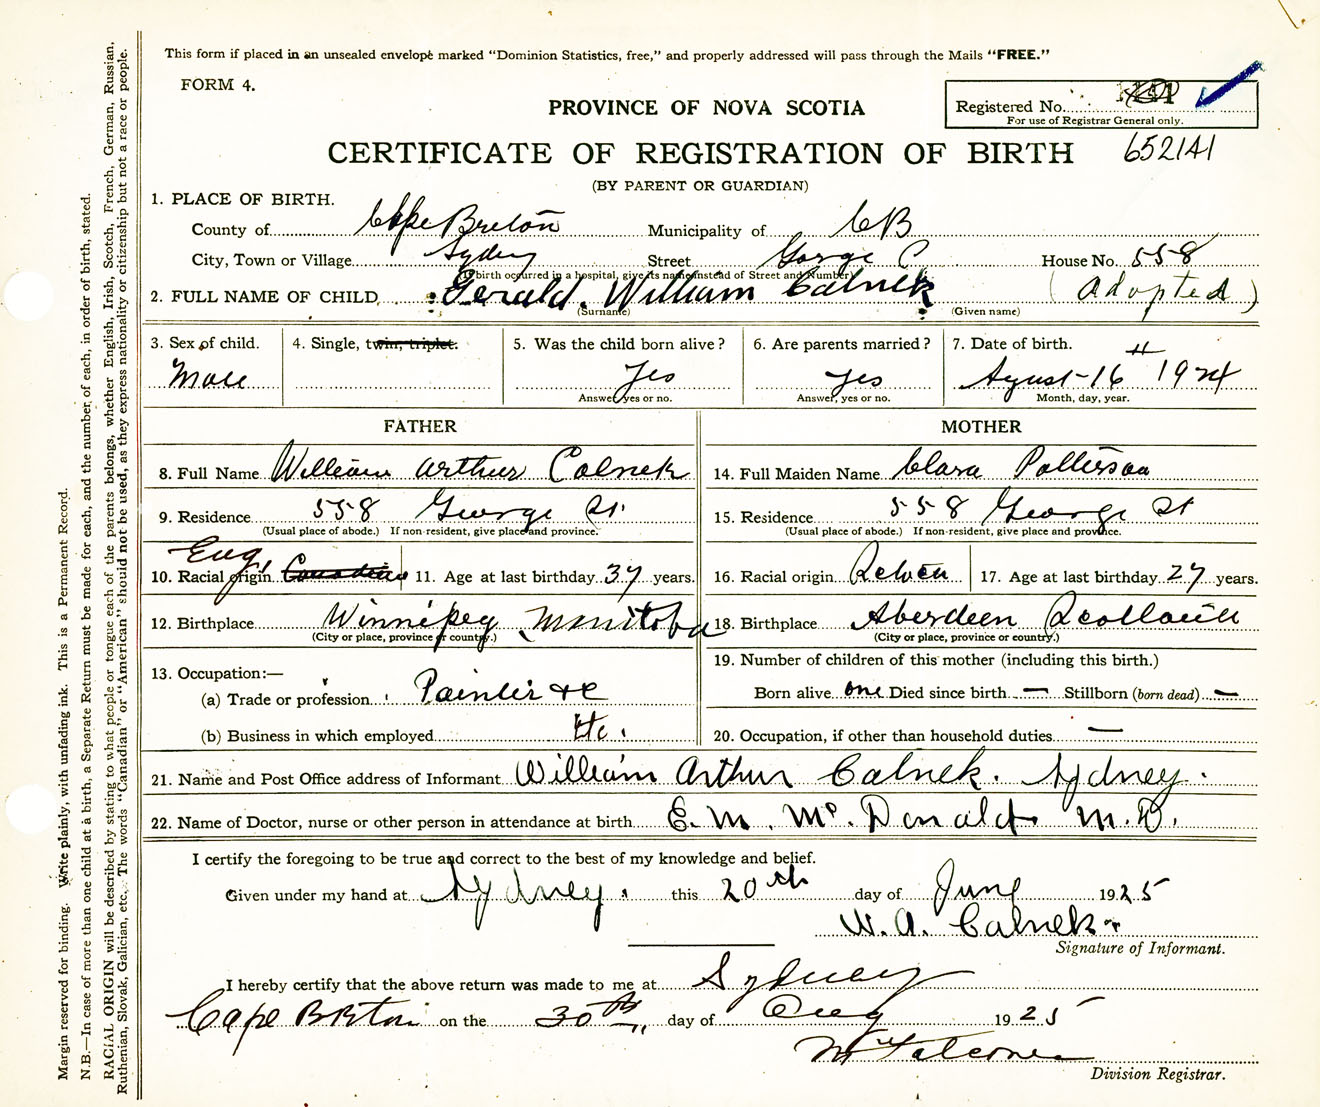 This form if placed in an unsealed envelope marked "Dominion Statistics, free," and properly addressed will pass through the Mails "FREE."
FORM 4.
PROVINCE OF NOVA SCOTIA
Registered No.
For use of Registrar General only.
CERTIFICATE OF REGISTRATION OF BIRTH 652141
(BY PARENT OR GUARDIAN)
1. PLACE OF BIRTH.
County of Cape Breton Municipality of CB
City, Town or Village Sydney Street George House No. 558
(If birth occurred in a hospital, give its name instead of Street and Number)
2. FULL NAME OF CHILD Gerald William Calnek (Adopted)
(Surname) (Given name)
3. Sex of child. 4. Single, twin, triplet. 5. Was the child born alive? 6. Are parents married? 7. Date of birth.
Male Yes Yes August 16th 1924
Answer, yes or no. Answer, yes or no. Month, day, year.
FATHER MOTHER
8. Full Name William Arthur Calnek 14. Full Maiden Name Clara Patterson
9. Residence 558 George St. 15. Residence 558 George St
(Usual place of abode.) If non-resident, give place and province. (Usual place of abode.) If non-resident, give place and province.
Eng.
10. Racial origin Canadian 11. Age at last birthday 37 years. 16. Racial origin 17. Age at last birthday 27 years.
12. Birthplace Winnipeg Manitoba 18. Birthplace Aberdeen Scotland
(City or place, province or country.) (City or place, province or country.)
13. Occupation:— 19. Number of children of this mother (including this birth.)
(a) Trade or profession Painter &c Born alive one Died since birth — Stillborn (born dead) —
(b) Business in which employed etc. 20. Occupation, if other than household duties —
21. Name and Post Office address of Informant William Arthur Calnek. Sydney.
22. Name of Doctor, nurse or other person in attendance at birth E. M. McDonald M.D.
I certify the foregoing to be true and correct to the best of my knowledge and belief.
Given under my hand at Sydney. this 20th day of June 1925
W. A. Calnek
Signature of Informant.
I hereby certify that the above return was made to me at Sydney
Cape Breton on the 30th day of Aug 1925
Division Registrar.
Margin reserved for binding. Write plainly, with unfading ink. This is a Permanent Record.
N.B.—In case of more than one child at a birth, a Separate Return must be made for each, and the number of each, in order of birth, stated.
RACIAL ORIGIN will be described by stating to what people or tongue each of the parents belongs, whether English, Irish, Scotch, French, German, Russian,
Ruthenian, Slovak, Galician, etc. The words "Canadian" or "American" should not be used, as they express nationality or citizenship but not a race or people.